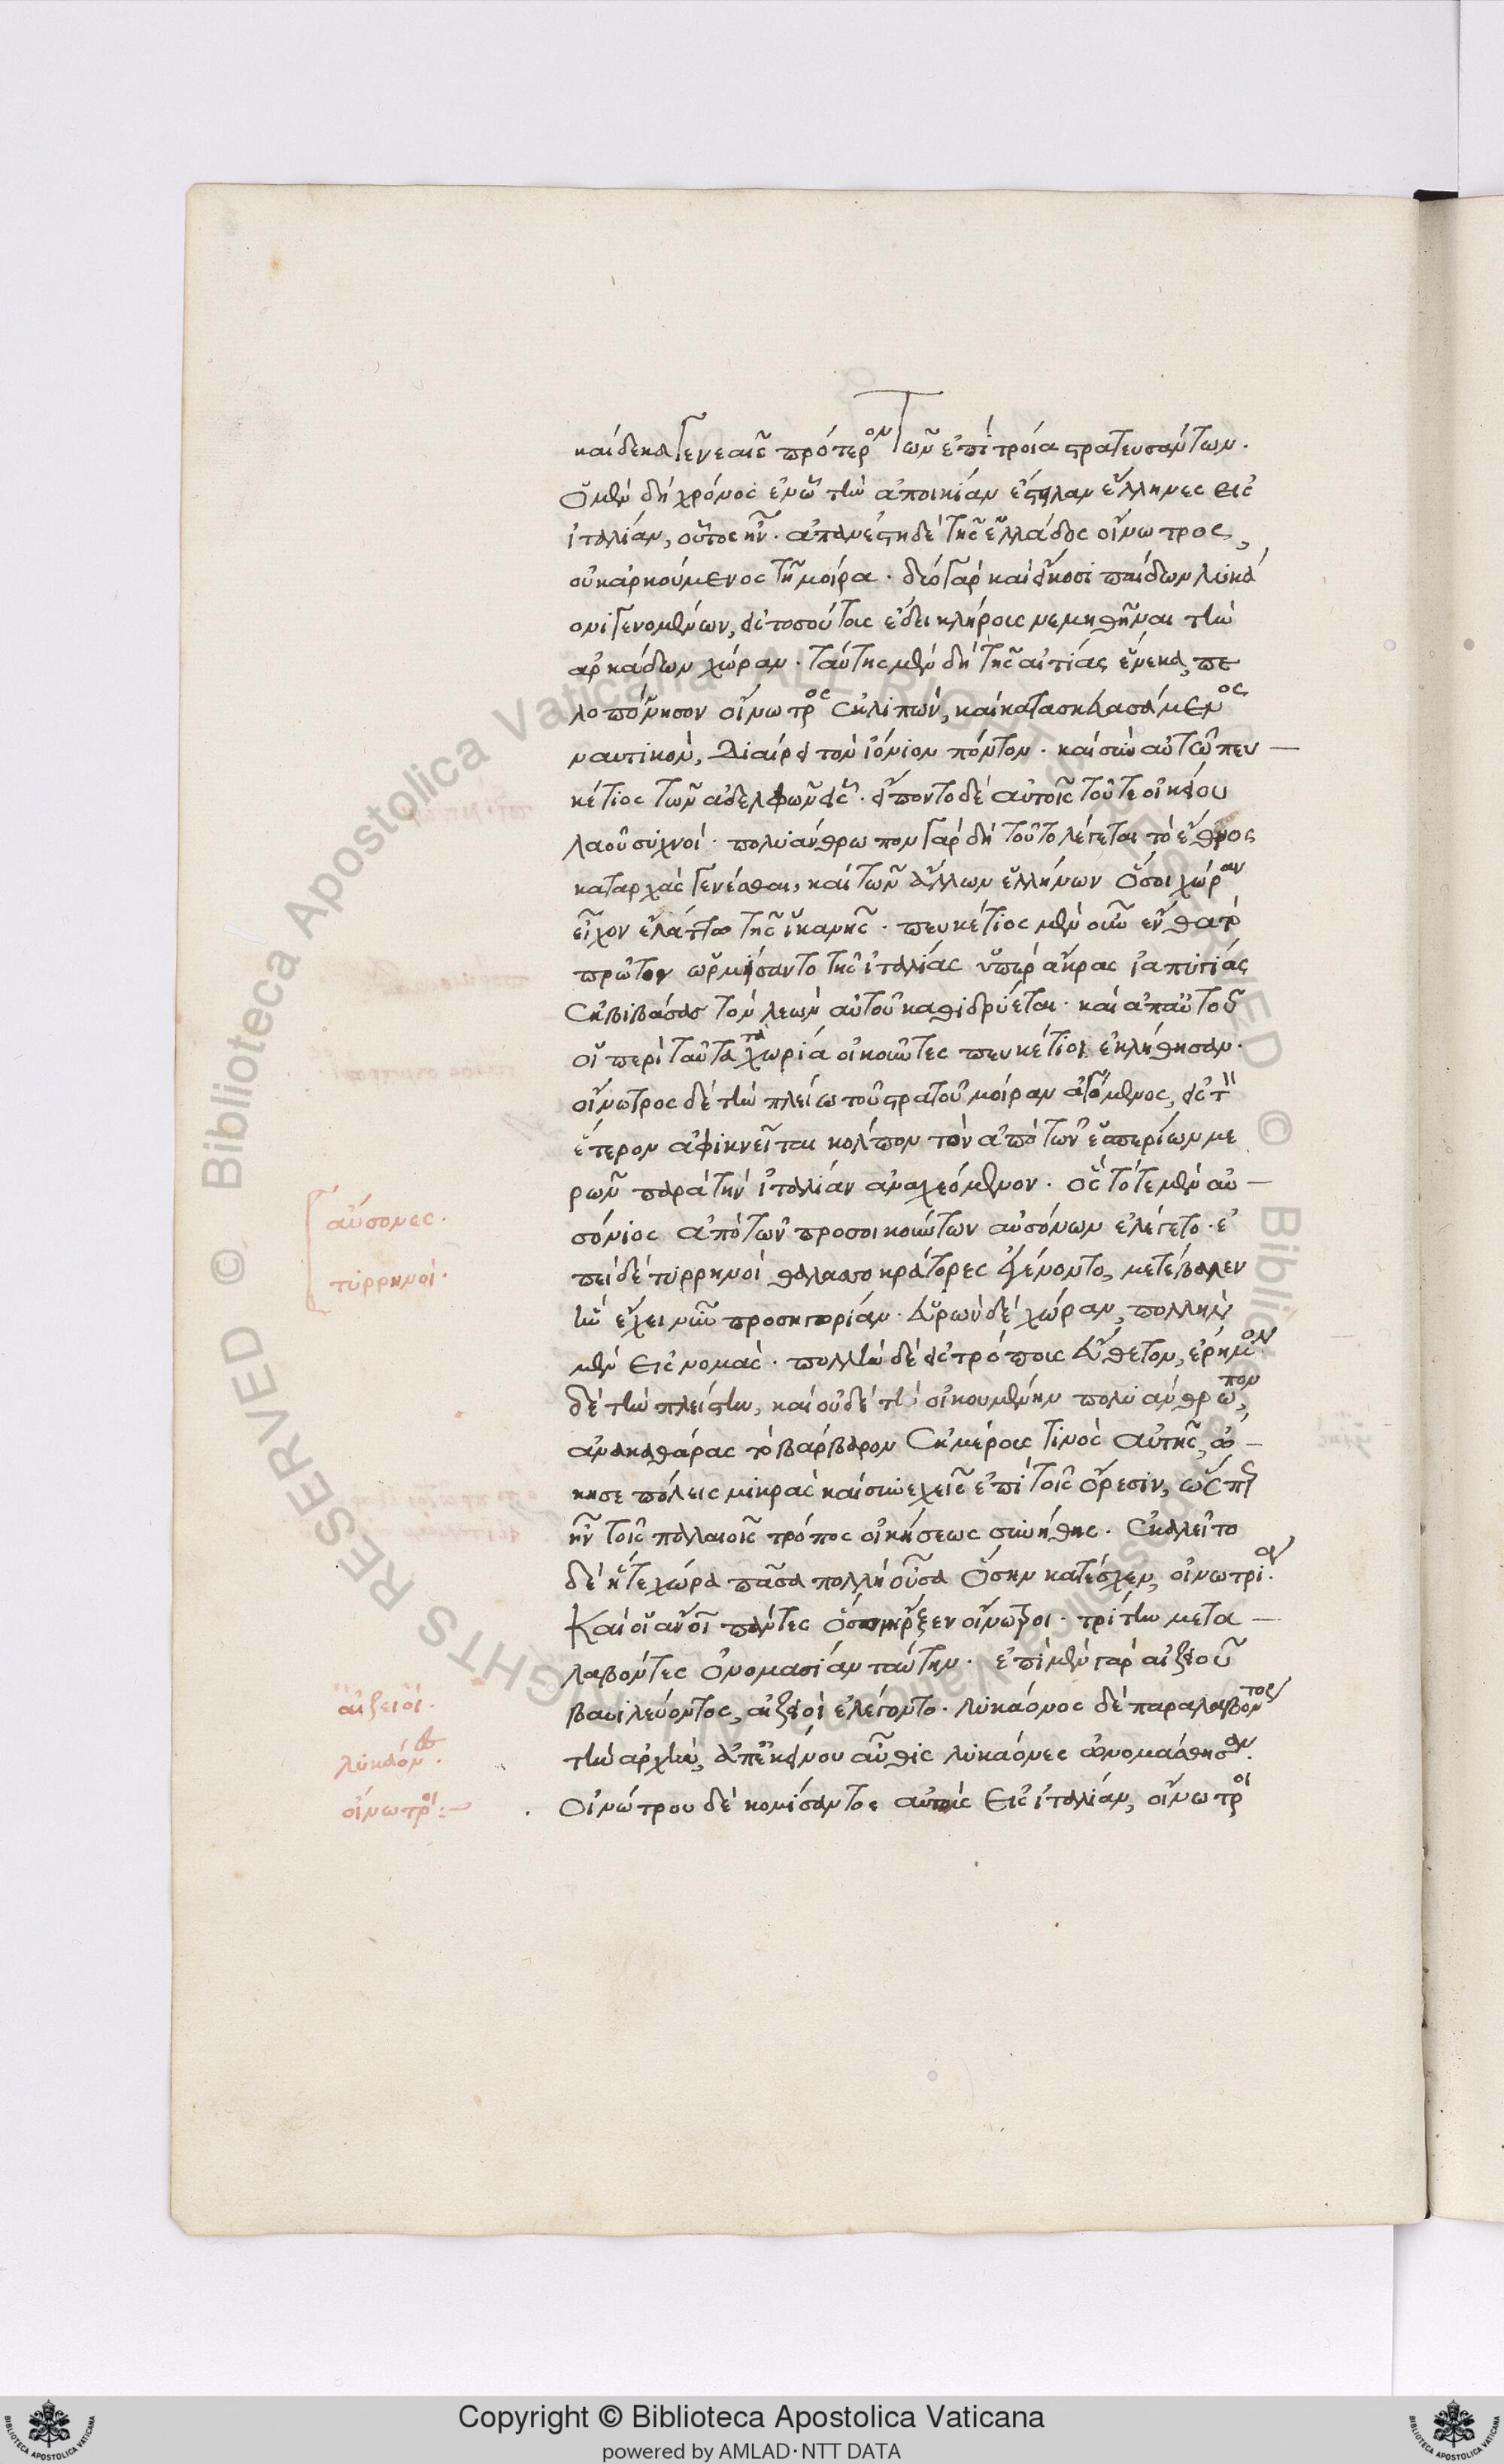 καὶ δέκα γενεαῖς πρότερον τῶν ἐπὶ τροία στρατευσάντων.
Ὁ μὲν δὴ χρόνος ἐν ᾧ τὴν ἀποικίαν ἔστειλαν ἕλληνες εἰς
ἰταλίαν, οὗτος ἦν. ἀπανέστη δὲ τῆς ἑλλάδος οἴνωτρος,
οὐκ ἀρκούμενος τῇ μοίρα. δύο γὰρ καὶ εἴκοσι παίδων λυκά
ονι γενομένων, εἰς τοσούτους ἔδει κλήρους νεμηθῆναι τὴν
ἀρκάδων χώραν. ταύτης μὲν δὴ τῆς αἰτίας ἕνεκα, πε
λοπόννησον οἴνωτρος ἐκλιπὼν, καὶ κατασκευασάμενος
ναυτικὸν, διαίρει τὸν ἰόνιον πόντον. καὶ σὺν αὐτῷ πευ
κέτιος τῶν ἀδελφῶν εἷς. εἵποντο δὲ αὐτοῖς τοῦ τε οἰκείου
λαοῦ συχνοί. πολυάνθρωπον γὰρ δὴ τοῦτο λέγεται τὸ ἔθνος
κατ' ἀρχὰς γενέσθαι, καὶ τῶν ἄλλων ἑλλήνων ὅσοι χώραν
εἶχον ἐλάττω τῆς ἱκανῆς. πευκέτιος μὲν οὖν ἔνθα τὸ
πρῶτον ὡρμίσαντο τῆς ἰταλίας ὑπὲρ ἄκρας ἰαπυγίας
ἐκβιβάσας τὸν λεὼν αὐτοῦ καθιδρύεται. καὶ ἀπ' αὐτοῦ
οἱ περὶ ταῦτα τὰ χωρία οἰκοῦντες πευκέτιοι ἐκλήθησαν.
οἴνωτρος δὲ τὴν πλείω τοῦ στρατοῦ μοίραν ἀγόμενος, εἰς τὸν
ἕτερον ἀφικνεῖται κόλπον τὸν ἀπὸ τῶν ἑσπερίων με
ρῶν παρὰ τὴν ἰταλίαν ἀναχεόμενον. ὃς τότε μὲν αὐ
σόνιος ἀπὸ τῶν προσοικούντων αὐσόνων ἐλέγετο. ἐ
πεὶ δὲ τυρρηνοὶ θαλασσοκράτορες ἐγένοντο, μετέβαλεν
ἣν ἔχει νῦν προσηγορίαν. εὑρὼν δὲ χώραν, πολλὴν
μὲν εἰς νομὰς. πολλὴν δὲ εἰς τρόποις εὔθετον, ἐρήμον
δὲ τὴν πλείστην, καὶ οὐδὲ τὴν οἰκουμένην πολυάνθρωπον,
ἀνακαθάρας τὸ βάρβαρον ἐκ μέρους τινὸς αὐτῆς, ᾤ
κησε πόλεις μικρὰς καὶ συνεχεῖς ἐπὶ τοῖς ὄρεσιν, ὥσπερ
ἦν τοῖς παλαιοῖς τρόπος οἰκήσεως συνήθης. ἐκαλεῖτο
δὲ ἥ τε χώρα πᾶσα πολλὴ οὖσα ὅσην κατέσχεν, οἰνωτρία.
Καὶ οἱ ἄνοι πάντες ὅσων ἦρξεν οἴνωτροι. τρίτην μετα
λαβόντες ὀνομασίαν ταύτην. ἐπὶ μὲν γὰρ αἰζειοῦ
βασιλεύοντος, αἰζειοὶ ἐλέγοντο. λυκάονος δὲ παραλαβόντος
τὴν ἀρχὴν, ἀπ' ἐκείνου αὖθις λυκάονες ὠνομάσθησαν.
Οἰνώτρου δὲ κομίσαντος αὐτοὺς εἰς ἰταλίαν, οἴνωτροι
αὔσονες.
τυρρηνοί.
αἰζειοί.
λυκάονες.
οἴνωτροι:
Copyright © Biblioteca Apostolica Vaticana
powered by AMLAD·NTT DATA